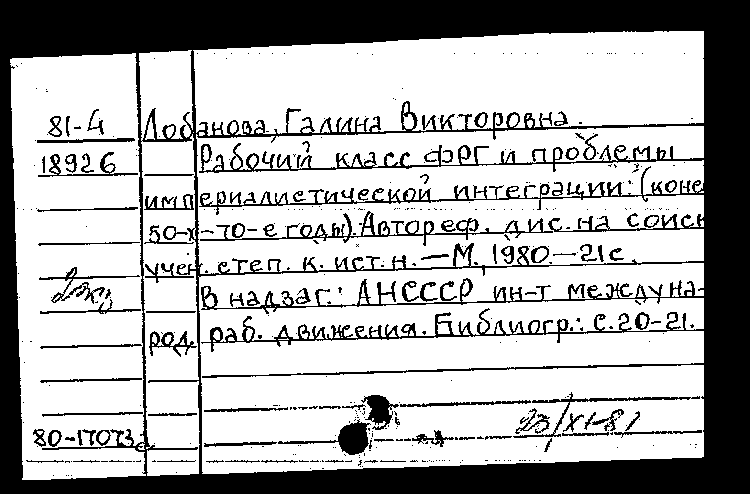 81-4 Лобанова, Галина Викторовна.
18926 Рабочий класс ФРГ и проблемы
империалистической интеграции: (коне
50-х-70-е годы). Автореф. дис. на соиск
учен. степ. к. ист. н. — М., 1980 — 21 с.
В надзаг.: АН СССР ин-т междуна-
род. раб. движения. Библиогр.: с. 20-21.
80-17073а
23/XI-81